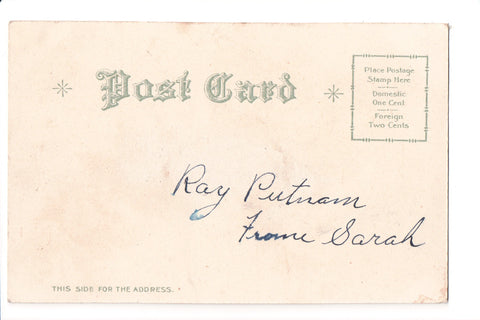 Post Card
Place Postage
Stamp Here
Domestic
One Cent
Foreign
Two Cents
Ray Putnam
Frome Sarah
THIS SIDE FOR THE ADDRESS.